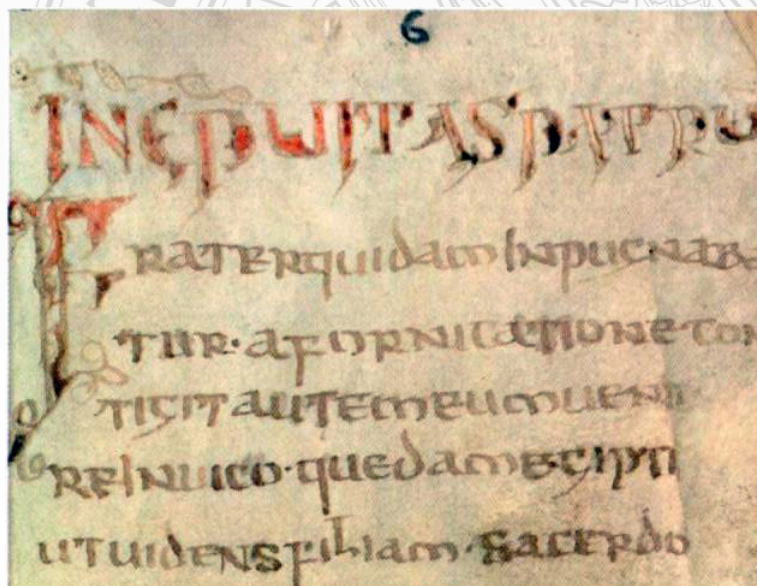 6
INEP UITAS PATRU
FRATER quidam INpugNaba
TUR· a FORNICATIONE· CON
TIGIT autem eum uenI
RE IN uico· quedam egIptI
UT uidens filiam· SACERdo